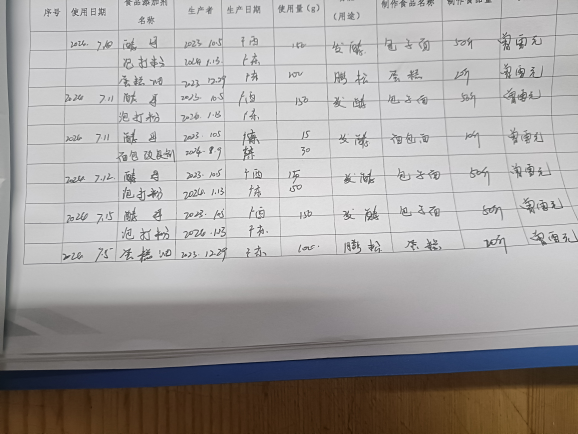 序号 使用日期 食品添加剂名称 生产者 生产日期 使用量(g) (用途) 制作食品名称 制作食品量
2024. 7.10 酵母 2023. 10.5 广西 150 发酵 包子面 50斤 曾雷元
泡打粉 2024. 1.13 广东
蛋糕油 2023. 12.29 广东 100 膨松 蛋糕 20斤 曾雷元
2024 7.11 酵母 2023. 10.5 广西 150 发酵 包子面 50斤 曾雷元
泡打粉 2024. 1.13 广东
2024 7.11 酵母 2023. 10.5 15 发酵 面包面 10斤 曾雷元
面包改良剂 2024. 8.9 30
2024 7.12 酵母 2023. 10.5 广西 发酵 包子面 50斤 曾雷元
泡打粉 2024. 1.13 广东 150
2024 7.15 酵母 2023. 10.5 广西 150 发酵 包子面 50斤 曾雷元
泡打粉 2024. 1.13 广东.
2024 7.5 蛋糕油 2023. 12.29 广东. 100. 膨松 蛋糕 20斤 曾雷元